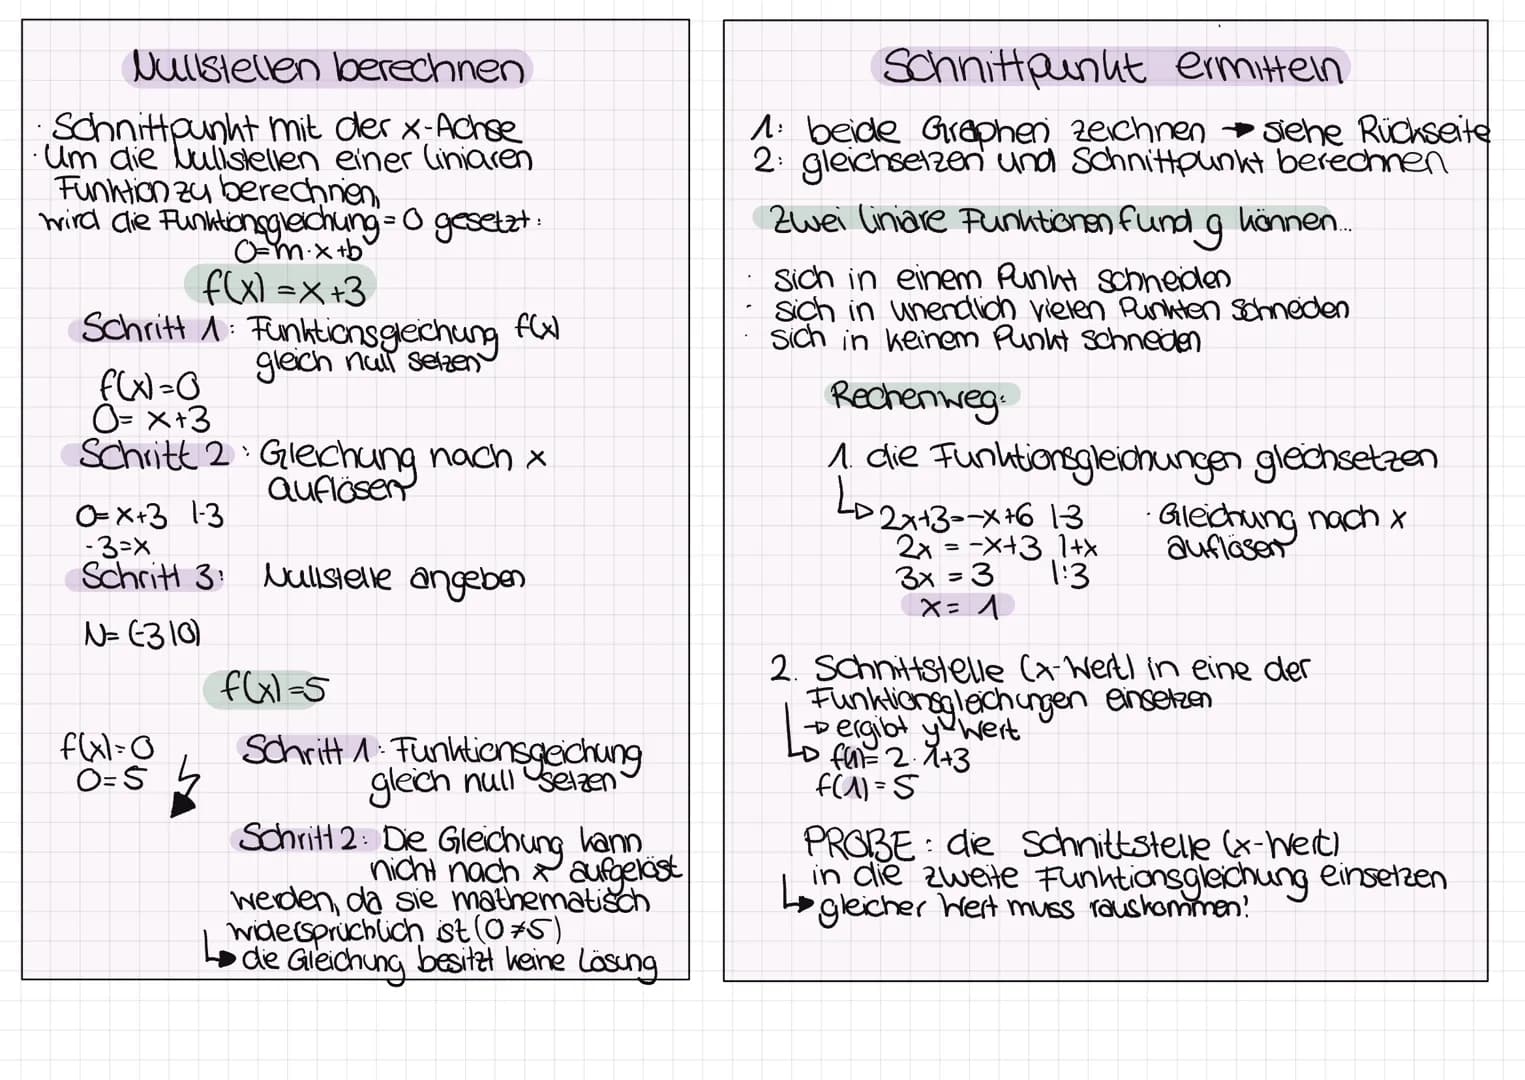 Nullstellen berechnen
· Schnittpunkt mit der x-Achse
· Um die Nullstellen einer liniaren
Funktion zu berechnen,
wird die Funktionsgleichung = 0 gesetzt:
0=m·x+b
f(x) = x+3
Schritt 1: Funktionsgleichung f(x)
gleich null setzen
f(x)=0
0= x+3
Schritt 2: Gleichung nach x
auflösen
0=x+3 |-3
-3=x
Schritt 3: Nullstelle angeben
N= (-3|0)
f(x)=5
f(x)=0
0=5
Schritt 1: Funktionsgeichung
gleich null setzen
Schritt 2: Die Gleichung kann
nicht nach x aufgelöst
werden, da sie mathematisch
widersprüchlich ist (0≠5)
↳ die Gleichung besitzt keine Lösung
Schnittpunkt ermitteln
1: beide Graphen zeichnen → siehe Rückseite
2: gleichsetzen und Schnittpunkt berechnen
Zwei liniare Funktionen f und g können...
· sich in einem Punkt schneiden
· sich in unendlich vielen Punkten schneiden
· sich in keinem Punkt schneiden
Rechenweg:
1. die Funktionsgleichungen gleichsetzen
↳ 2x+3=-x+6 |-3
2x = -x+3 |+x
3x = 3 |:3
x= 1
· Gleichung nach x
auflösen
2. Schnittstelle (x-Wert) in eine der
Funktionsgleichungen einsetzen
→ ergibt y-Wert
↳ f(1)= 2·1+3
f(1)=5
PROBE: die Schnittstelle (x-Wert)
in die zweite Funktionsgleichung einsetzen
↳ gleicher Wert muss rauskommen!